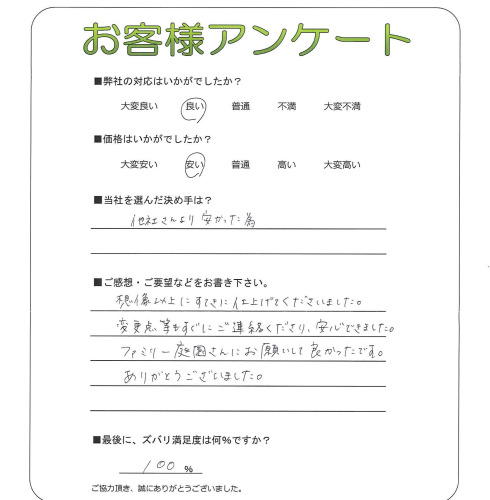 お客様アンケート
■弊社の対応はいかがでしたか？
大変良い 良い 普通 不満 大変不満
■価格はいかがでしたか？
大変安い 安い 普通 高い 大変高い
■当社を選んだ決め手は？
他社さんより安かった為
■ご感想・ご要望などをお書き下さい。
想像以上にすてきに仕上げてくださいました。
変更点等もすぐにご連絡くださり、安心できました。
ファミリー庭園さんにお願いして良かったです。
ありがとうございました。
■最後に、ズバリ満足度は何%ですか？
100 %
ご協力頂き、誠にありがとうございました。